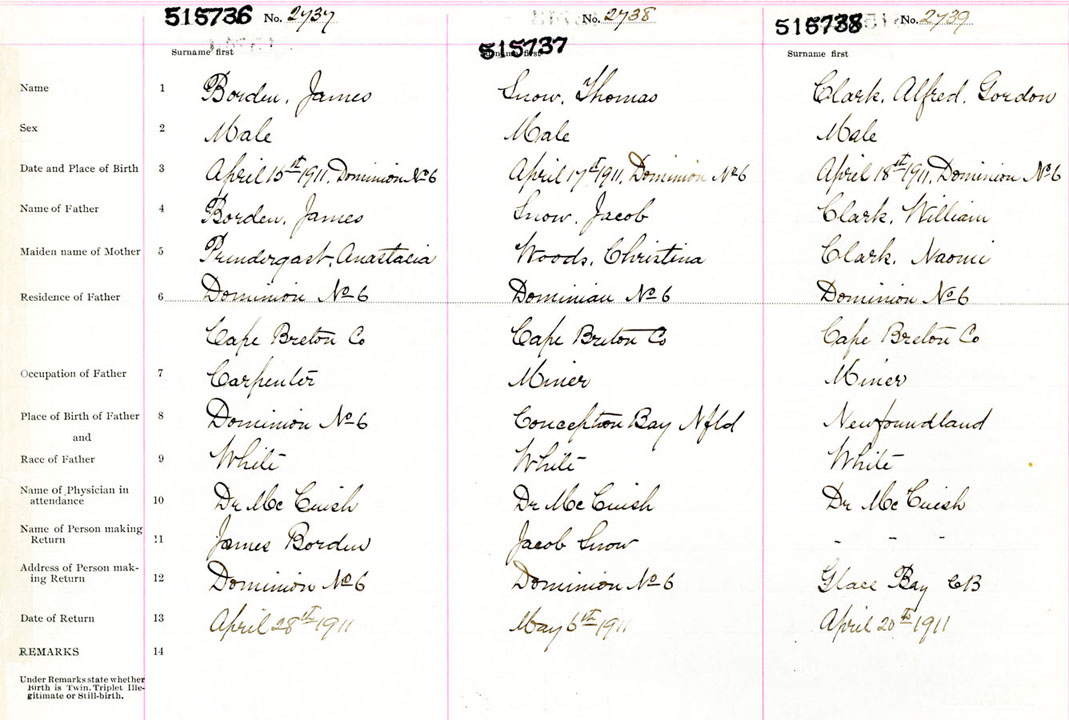 515736 No. 2737
No. 2738
515738 No. 2739
515737
Surname first
Surname first
Surname first
Name 1 Borden, James Snow, Thomas Clark, Alfred, Gordon
Sex 2 Male Male Male
Date and Place of Birth 3 April 15st 1911, Dominion No 6 April 17st 1911, Dominion No 6 April 18st 1911, Dominion No 6
Name of Father 4 Borden, James Snow, Jacob Clark, William
Maiden name of Mother 5 Prundergast, Anastacia Woods, Christina Clark, Naomi
Residence of Father 6 Dominion No 6 Dominion No 6 Dominion No 6
Cape Breton Co Cape Breton Co Cape Breton Co
Occupation of Father 7 Carpenter Miner Miner
Place of Birth of Father 8 Dominion No 6 Conception Bay Nfld Newfoundland
and
Race of Father 9 White White White
Name of Physician in
attendance 10 Dr Mc Cuish Dr Mc Cuish Dr Mc Cuish
Name of Person making
Return 11 James Borden Jacob Snow - - -
Address of Person mak-
ing Return 12 Dominion No 6 Dominion No 6 Glace Bay CB
Date of Return 13 April 28th 1911 May 5th 1911 April 20th 1911
REMARKS 14
Under Remarks state whether
Birth is Twin, Triplet Ille-
gitimate or Still-birth.